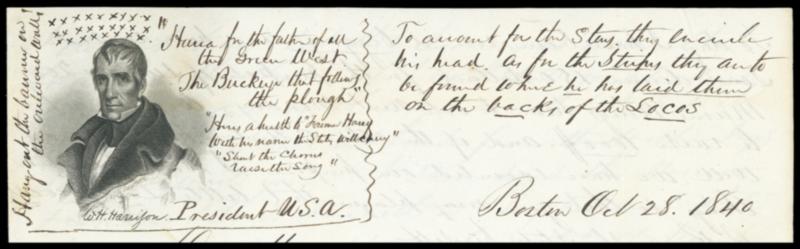 Hang out the banner on
the outward walls
"Huzza for the father of all
the Green West
The Buckeye that follows
the plough"
"Here's a health to Farmer Harry
With his name the State will carry"
"Shout the Chorus
raise the Song"
W.H. Harrison. President U.S.A.
To account for the Stars, they encircle
his head. as for the Stripes they are to
be found where he has laid them
on the backs of the Locos
Boston Oct 28. 1840